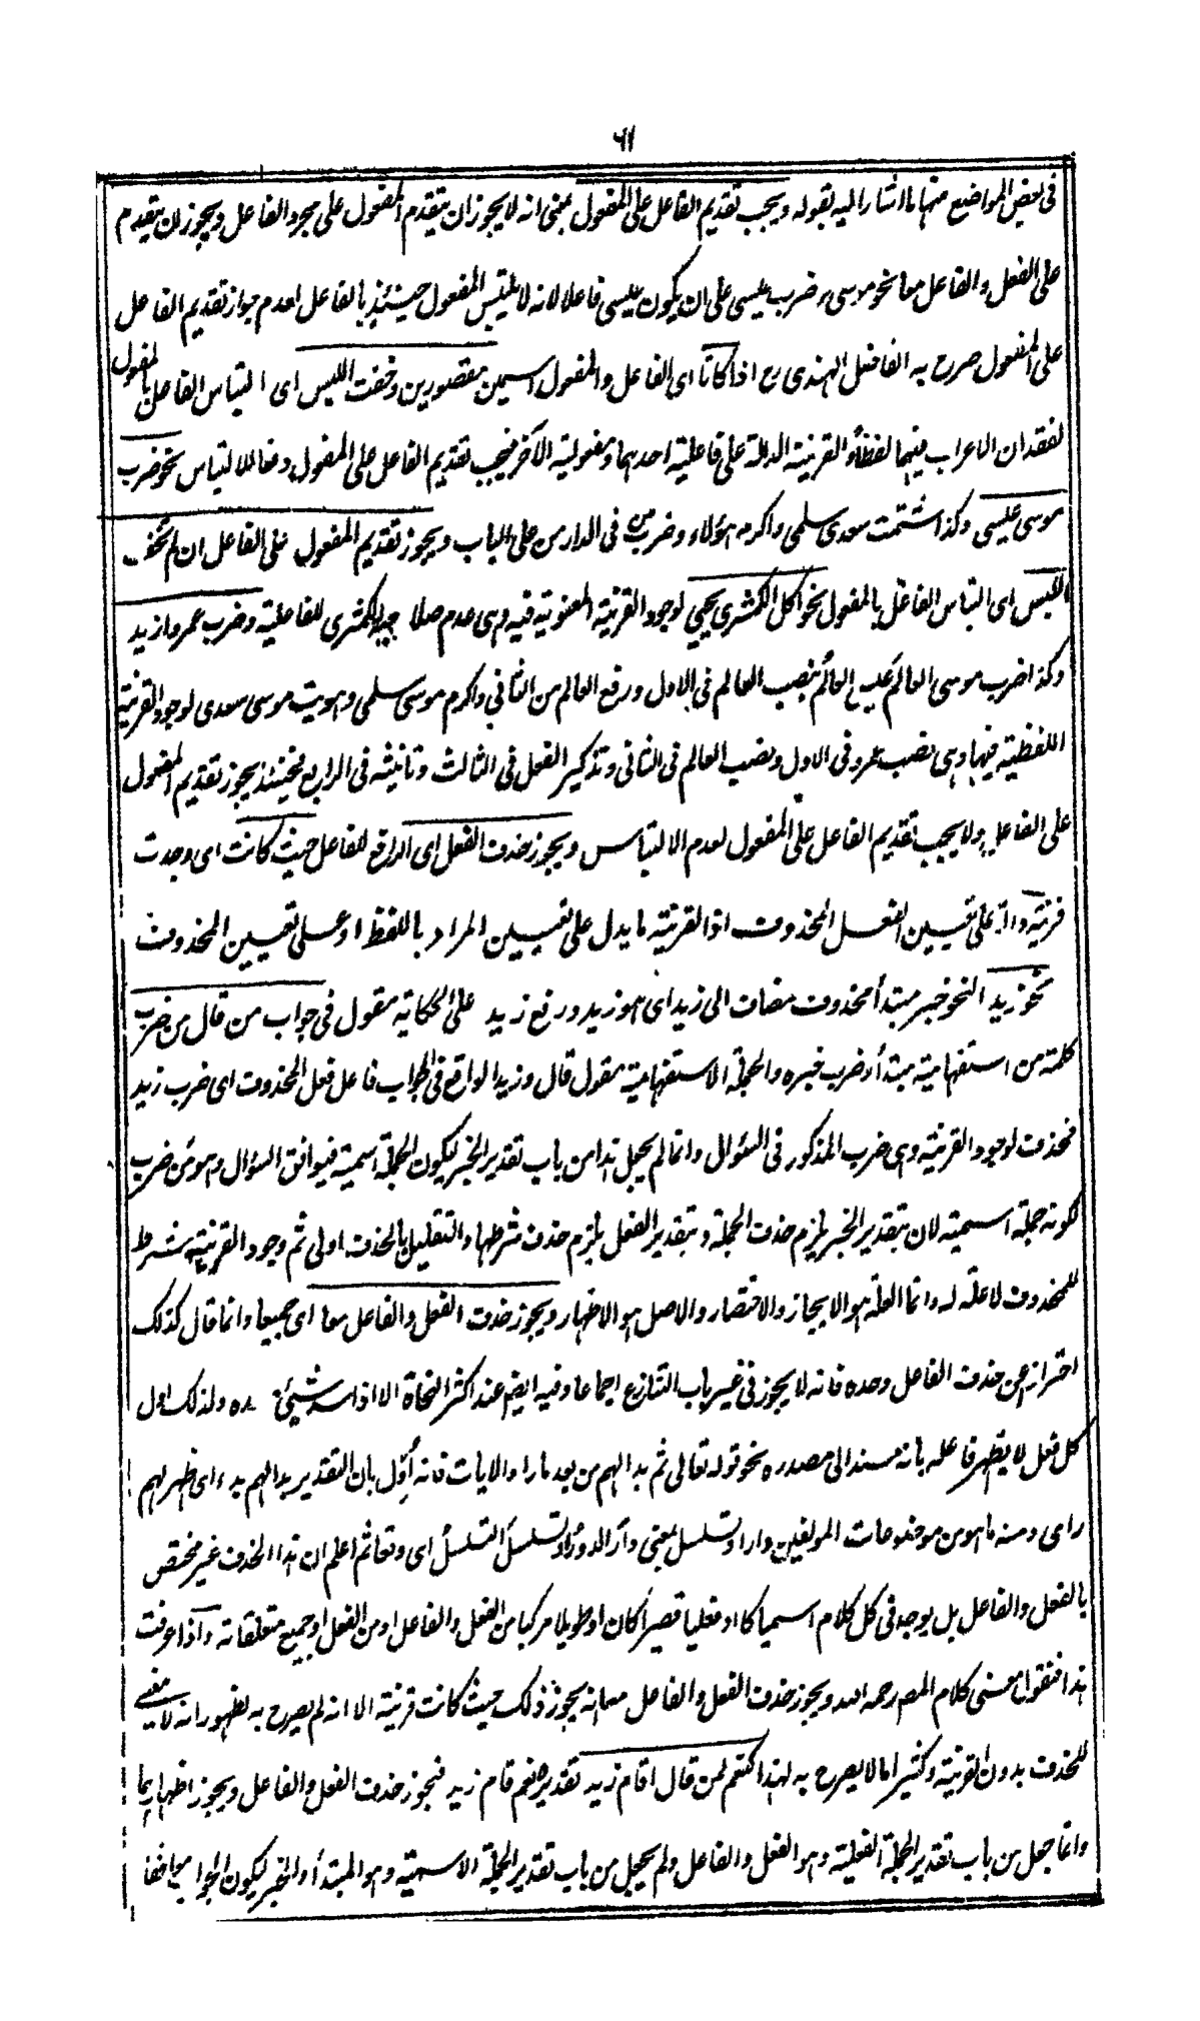 ٦١
فى بعض المواضع منها ما اشار اليه بقوله ويجب تقديم الفاعل على المفعول بمعنى انه لا يجوز ان يتقدم المفعول على مجرد الفاعل ويجوز ان يتقدم
على الفعل والفاعل معا نحو موسى ضرب عيسى على ان يكون عيسى فاعلا لانه لا يلتبس المفعول حينئذ بالفاعل لعدم جواز تقديم الفاعل
على المفعول صرح به الفاضل الهندى رح اذا كانا اى الفاعل والمفعول اسمين مقصورين وخفت اللبس اى التباس الفاعل بالمفعول
لفقدان الاعراب فيهما لفظا والقرينة الدالة على فاعلية احدهما ومفعولية الآخر فيجب تقديم الفاعل على المفعول دفعا للالتباس نحو ضرب
موسى عيسى وكذا شتمت سعدى سلمى واكرم هؤلاء وضرب من فى الدار من على الباب ويجوز تقديم المفعول على الفاعل ان لم تخف
اللبس اى التباس الفاعل بالمفعول نحو اكل الكمثرى يحيى لوجود القرينة المعنوية فيه وهى عدم صلاحية الكمثرى للفاعلية وضرب عمروا زيد
وكذا ضرب موسى العالم عيسى العالم بنصب العالم فى الاول ورفع العالم من الثانى واكرم موسى سلمى وهويت موسى سعدى لوجود القرينة
اللفظية فيها وهى نصب عمرو فى الاول ونصب العالم فى الثانى وتذكير الفعل فى الثالث وتانيثه فى الرابع فحينئذ يجوز تقديم المفعول
على الفاعل ولا يجب تقديم الفاعل على المفعول لعدم الالتباس ويجوز حذف الفعل اى الرافع للفاعل حيث كانت اى وجدت
قرينة دالة على تعيين الفعل المحذوف اذ القرينة ما يدل على تعيين المراد باللفظ او على تعيين المحذوف
نحو زيد النحو خبر مبتدأ محذوف مضاف الى زيد اى هو زيد ورفع زيد على الحكاية مقول فى جواب من قال من ضرب
كلمة من استفهامية مبتدأ وضرب خبره والجملة الاستفهامية مقول قال وزيد الواقع فى الجواب فاعل فعل المحذوف اى ضرب زيد
فحذف لوجود القرينة وهى ضرب المذكور فى السؤال وانما لم يجعل هذا من باب تقدير الخبر ليكون الجملة اسمية فيوافق السؤال وهو من ضرب
لكونه جملة اسمية لان بتقدير الخبر يلزم حذف الجملة وبتقدير الفعل يلزم حذف شرطها والتقليل بالحذف اولى ثم وجود القرينة شرط
للمحذوف لا علة له وانما العلة هو الايجاز والاختصار والاصل هو الاظهار ويجوز حذف الفعل والفاعل معا اى جميعا وانما قال كذلك
احتراز عن حذف الفاعل وحده فانه لا يجوز فى غير باب التنازع اجماعا وفيه ايضم عند اكثر النحاة الا اذا سد شئ ده ولذلك اول
كل فعل لا يظهر فاعله بانه مسند الى مصدره نحو قوله تعالى ثم بدا لهم من بعد ما راوا الايات فانه أُوِّل بان التقدير بدا لهم بدء اى ظهر لهم
راى ومنه ما هو من موضوعات المولفين دارا وتسلسل بمعنى دار الدور وتسلسل التسلسل اى وقعا ثم اعلم ان هذا الحذف غير مختص
بالفعل والفاعل بل يوجد فى كل كلام اسميا كا او فعليا قصيرا كان او طويلا مركبا من الفعل والفاعل او من الفعل وجميع متعلقاته واذا عرفت
هذا فنقول معنى كلام المصم رحمه الله ويجوز حذف الفعل والفاعل معا انه يجوز ذلك حيث كانت قرينة الا انه لم يصرح به لظهور انه لا معنى
للحذف بدون القرينة وكثيرا ما لا يصرح به لهذا كنعم لمن قال اقام زيد تقديره نعم قام زيد فنجوز حذف الفعل والفاعل ويجوز اظهارهما
وانما جعل من باب تقدير الجملة الفعلية وهو الفعل والفاعل ولم يجعل من باب تقدير الجملة الاسمية وهو المبتدأ والخبر ليكون الجواب موافقا